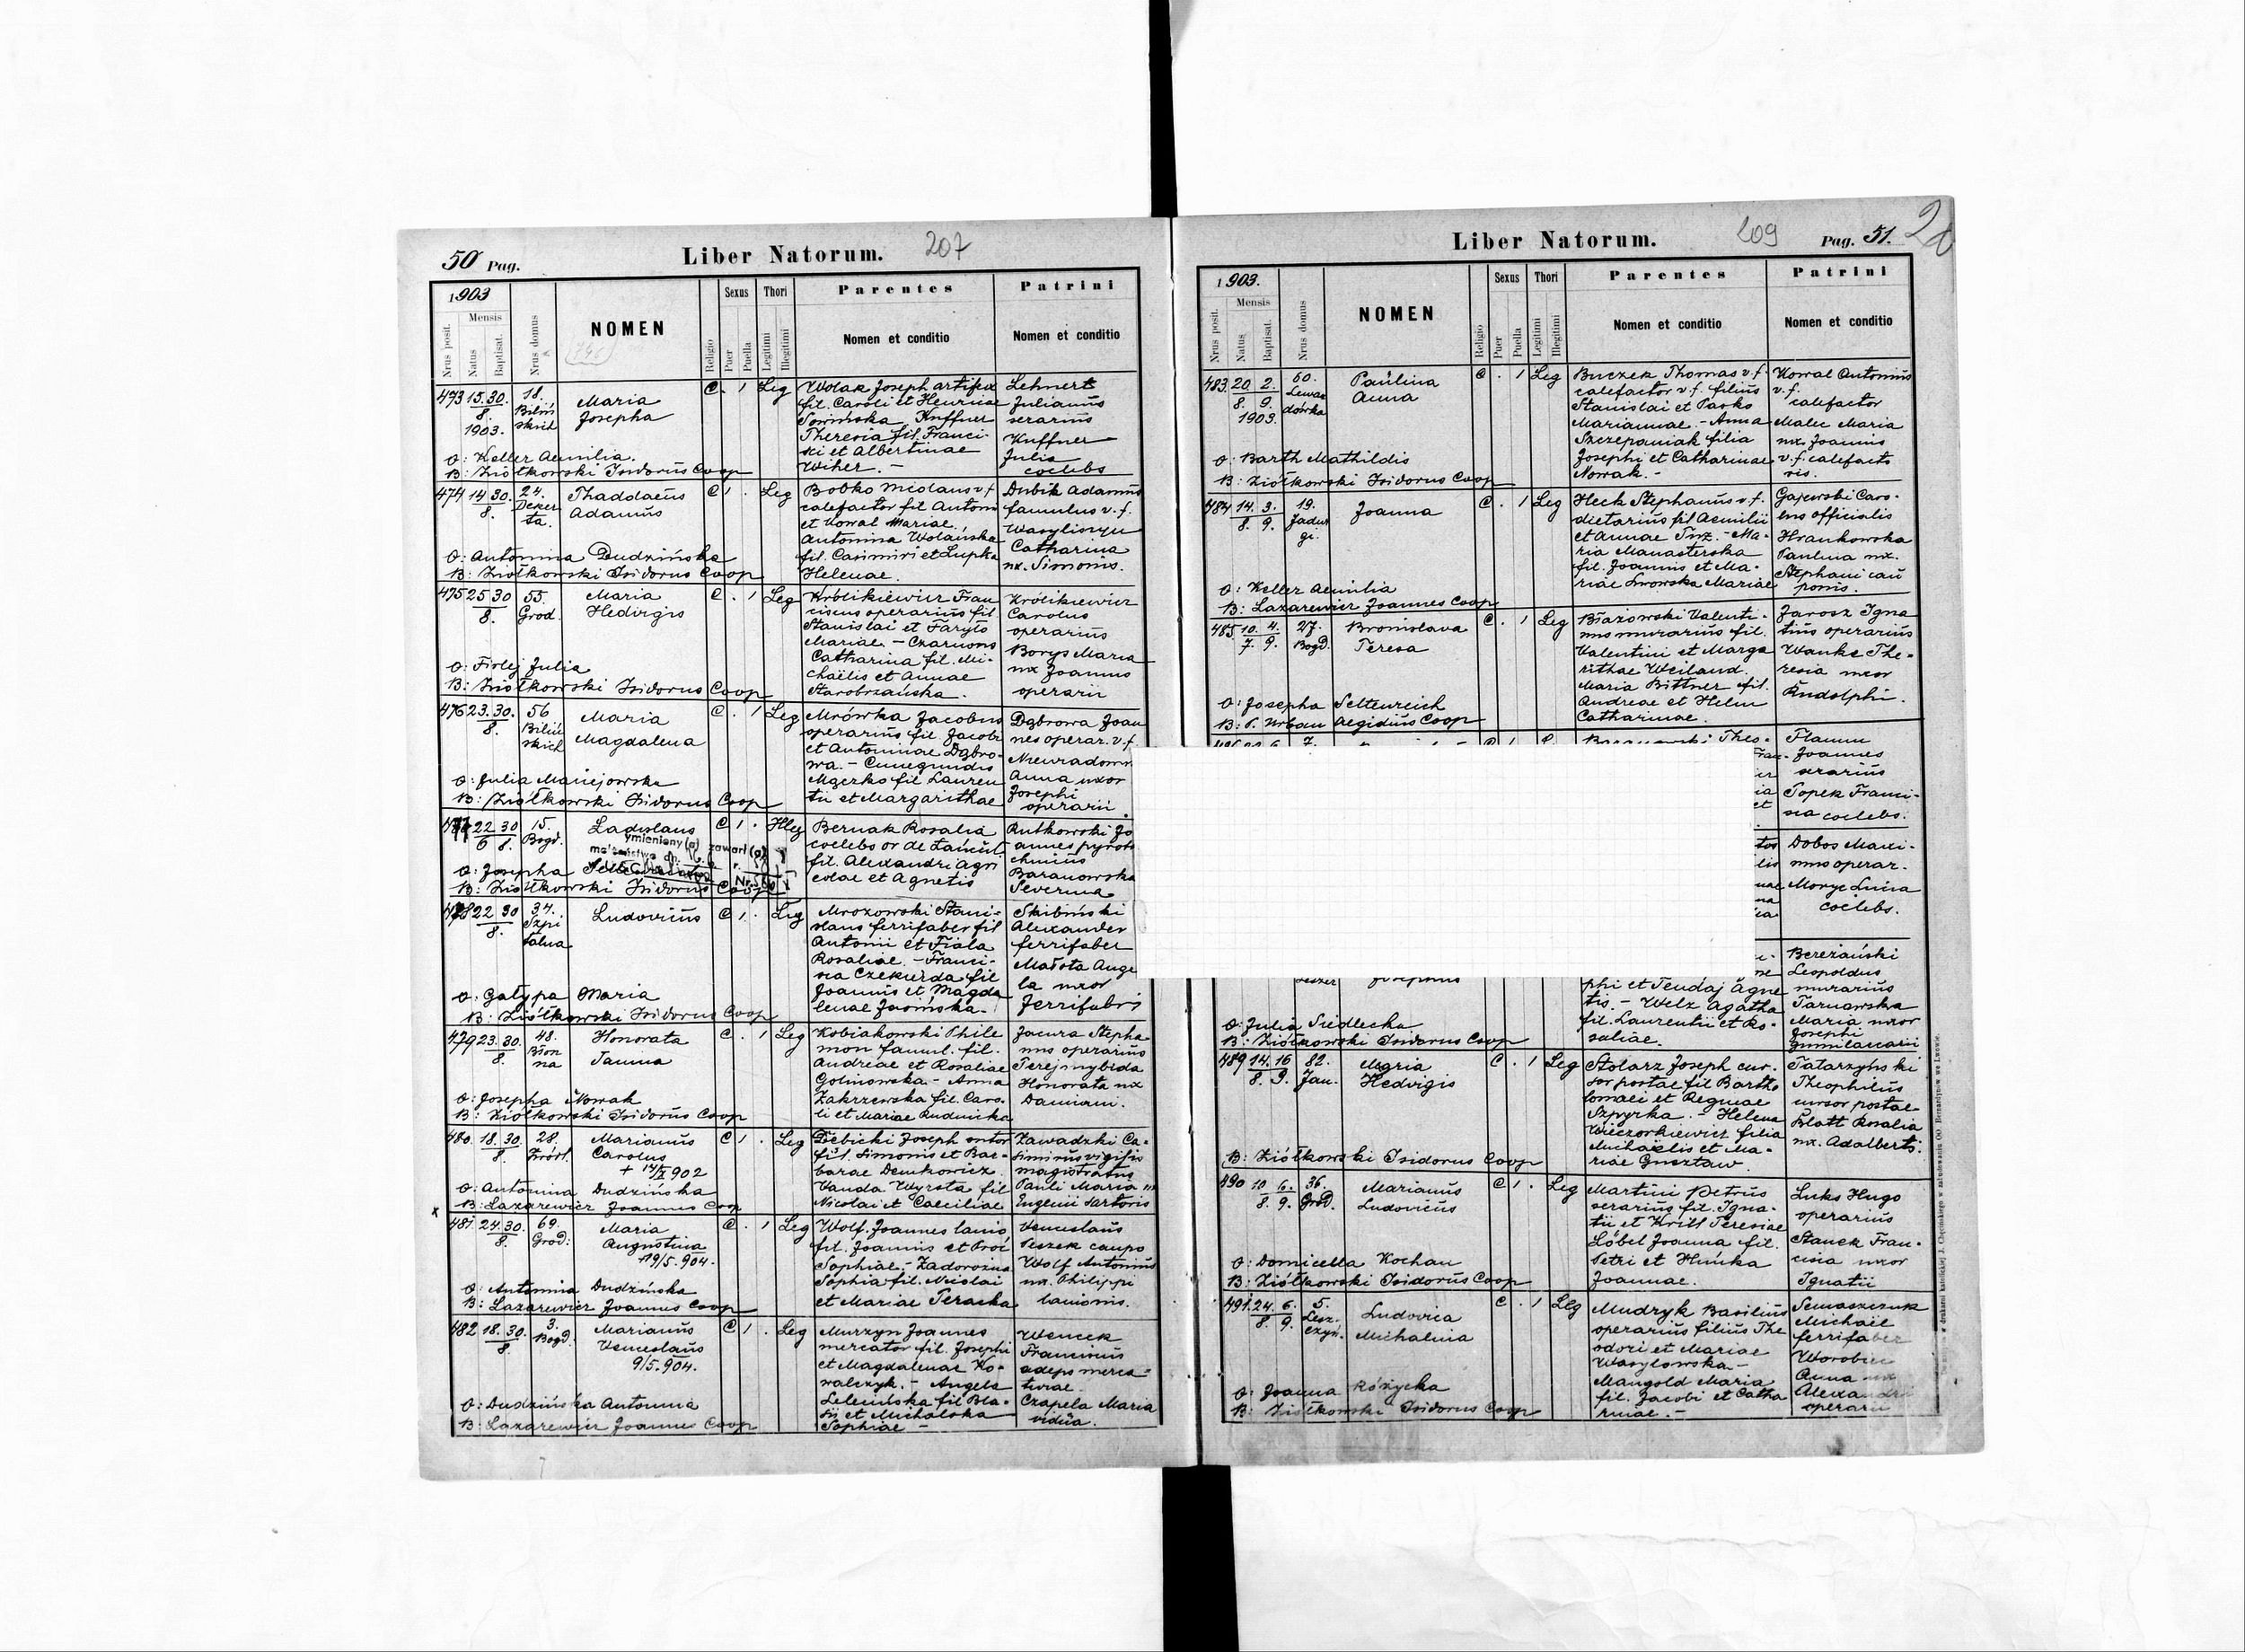 50 Pag.
Liber Natorum.
207
1903
Nrus posit.
Mensis
Natus
Baptisat.
Nrus domus
NOMEN
Religio
Sexus
Puer
Puella
Thori
Legitimi
Illegitimi
Parentes
Nomen et conditio
Patrini
Nomen et conditio
473 15. 30. 18. Maria C . 1 Leg Wolak Joseph artifex Lehnert
8. Josepha fil. Caroli et Henricae Julianus
1903. Kuffner serarius
Theresia fil. Franci- Kuffner
O: Keller Aemilia. ski et Albertinae Julia
B: Ziółkowski Isidorus Coop Wiher. - coelebs
474 14 30. 24. Thaddaeus C 1 . Leg Bobko Nicolaus v.f. Dubik Adamus
8. Adamus calefactor fil Antoni famulus v.f.
et Kowal Mariae.
Antonina Wolańska Catharina
O: Antonina Dudzińska fil. Casimiri et Łupka ux. Simonis.
B: Ziółkowski Isidorus Coop Helenae.
475 25 30 55. Maria C . 1 Leg Królikiewicz Fran Królikiewicz
8. Grod. Hedvigis ciscus operarius fil. Carolus
Stanislai et Faryto operarius
Mariae. - Borys Maria
O: Firlej Julia Catharina fil. Mi- ux Joannis
B: Ziółkowski Isidorus Coop chaëlis et Annae operarii
Starobrzańska.
476 23. 30. 56 Maria C . 1 Leg Mrówka Jacobus Dąbrowa Joan
8. Biliń Magdalena operarius fil. Jacobi nes operar. v.f.
skich et Antoninae Dąbro-
wa. - Cunegundis Anna uxor
O: Julia Maciejowska fil Lauren Josephi
B: Ziółkowski Isidorus Coop tii et Margarithae operarii
477 22 30 15. Ladislaus C 1 . Illeg Bernak Rosalia Rutkowski Jo
6 8. Bogd. coelebs or de Łańcut annes pyrote
O: Josepha fil. Alexandri agri chnicus
B: Ziółkowski Isidorus Coop colae et Agnetis Baranowska
Severina
478 22 30 34. Ludovicus C 1 . Leg Mrozowski Stani- Skibiński
8. Szpi slaus ferrifaber fil Alexander
talna Antonii et Fiala ferrifaber
Rosaliae. - Franci- Małota Ange
sca Czekierda fil la uxor
O: Gałypa Maria Joannis et Magda ferrifabri
B: Ziółkowski Isidorus Coop lenae Jasińska.
479 23. 30. 48. Honorata C . 1 Leg Kobiakowski Phile Jacura Stepha
8. Błon Janina mon famul. fil. nus operarius
na Andreae et Rosaliae
Golinowska - Anna Honorata ux
O: Josepha Nowak Zakrzewska fil. Caro- Damiani.
B: Ziółkowski Isidorus Coop li et Mariae Rudnicka
480. 18. 30. 28. Marianus C 1 . Leg Dębicki Joseph sutor Zawadzki Ca-
8. Źródl. Carolus fil. Simonis et Bar- simirus vigilis
+ 14/X 902 barae Demkowicz. magistratus
O: Antonina Dudzińska Vanda Wyrsta fil Pauli Maria ux
B: Lazarewicz Joannes Coop Nicolai et Caeciliae Eugenii sartoris
x
481. 24. 30. 69. Maria C . 1 Leg Wolf Joannes lanio Venceslaus
8. Grod: Augustina fil. Joannis et Proć Peszek caupo
+ 19/5. 904. Sophiae. - Zadorożna Wolf Antonina
O: Antonina Dudzińska Sophia fil. Nicolai ux. Philippi
B: Lazarewicz Joannes Coop et Mariae Teracka lanionis.
482 18. 30. 3. Marianus C 1 . Leg Murzyn Joannes Wencek
8. Bogd. Venceslaus mercator fil. Josephi Franciscus
9/5. 904. et Magdalenae Ko- adeps merca-
walczyk. - Angela turae.
O: Dudzińska Antonina Lelenińska fil Bla- Czapela Maria
B: Lazarewicz Joannes Coop sii et Michalska vidua.
Sophiae -
Liber Natorum.
209
Pag. 51.
1903.
Nrus posit.
Mensis
Natus
Baptisat.
Nrus domus
NOMEN
Religio
Sexus
Puer
Puella
Thori
Legitimi
Illegitimi
Parentes
Nomen et conditio
Patrini
Nomen et conditio
483. 20. 2. 60. Paulina C . 1 Leg Buczek Thomas v.f. Kowal Antonius
8. 9. Lewan Anna calefactor v.f. filius v.f.
1903. dówka Stanislai et Pasko calefactor
Mariannae. - Anna Malec Maria
Szczepaniak filia ux. Joannis
O: Barth Mathildis Josephi et Catharinae v.f. calefacto
B: Ziółkowski Isidorus Coop Nowak. - ris.
484 14. 3. 19. Joanna C . 1 Leg Heck Stephanus v.f. Gajewski Caro-
8. 9. dietarius fil Aemilii lus officialis
et Annae - Ma- Hrankowska
ria Manasterska Paulina ux.
O: Keller Aemilia fil. Joannis et Ma- Stephani cau
B: Lazarewicz Joannes Coop riae Lwowska Mariae ponis.
485 10. 4. 27. Bronislava C . 1 Leg Błazowski Valenti- Jarosz Igna
7. 9. Bogd. Teresa nus murarius fil. tius operarius
Valentini et Marga Wanke The-
rithae Weiland. resia uxor
O: Josepha Seltenreich Maria Bittner fil. Rudolphi.
B: P. Urban Aegidius Coop Andreae et Helm
Catharinae.
Flamm
Joannes
serarius
Topek Franci-
sca coelebs.
Dobos Maxi-
mus operar.
Moryc Luisa
coelebs.
Bereżański
Leopoldus
phi et Tendaj Agne murarius
tis. - Welz Agatha Tarnawska
O: Julia Siedlecka fil. Laurentii et Ro- Maria uxor
B: Ziółkowski Isidorus Coop saliae. Josephi
489 14. 16 82. Maria C . 1 Leg Stolarz Joseph cur- Tatarzyński
8. 9. Jan. Hedvigis sor postae fil Bartho Theophilus
lomaei et Reginae cursor postae
Szpyrka. - Helena Blatt Rosalia
Wieczorkiewicz filia ux. Adalberti.
Michaëlis et Ma-
B: Ziółkowski Isidorus Coop riae Gusztaw
490 10 6. 36. Marianus C 1 . Leg Martini Petrus Luks Hugo
8. 9. Grod. Ludovicus serarius fil. Igna- operarius
tii et Kritl Teresiae
Löbel Joanna fil. Stanek Fran-
O: Domicella Kochan Petri et Huńka cisca uxor
B: Ziółkowski Isidorus Coop Joannae. Ignatii
491. 24. 6. 5. Ludovica C . 1 Leg Mudryk Basilius Semaszczuk
8. 9. Lesz- Michalina operarius filius The Michaël
czyń. odori et Mariae ferrifaber
Wasylowska - Worobiec
O: Joanna Różycka Mangold Maria Anna ux
B: Ziółkowski Isidorus Coop fil. Jacobi et Catha Alexandri
rinae. - operarii